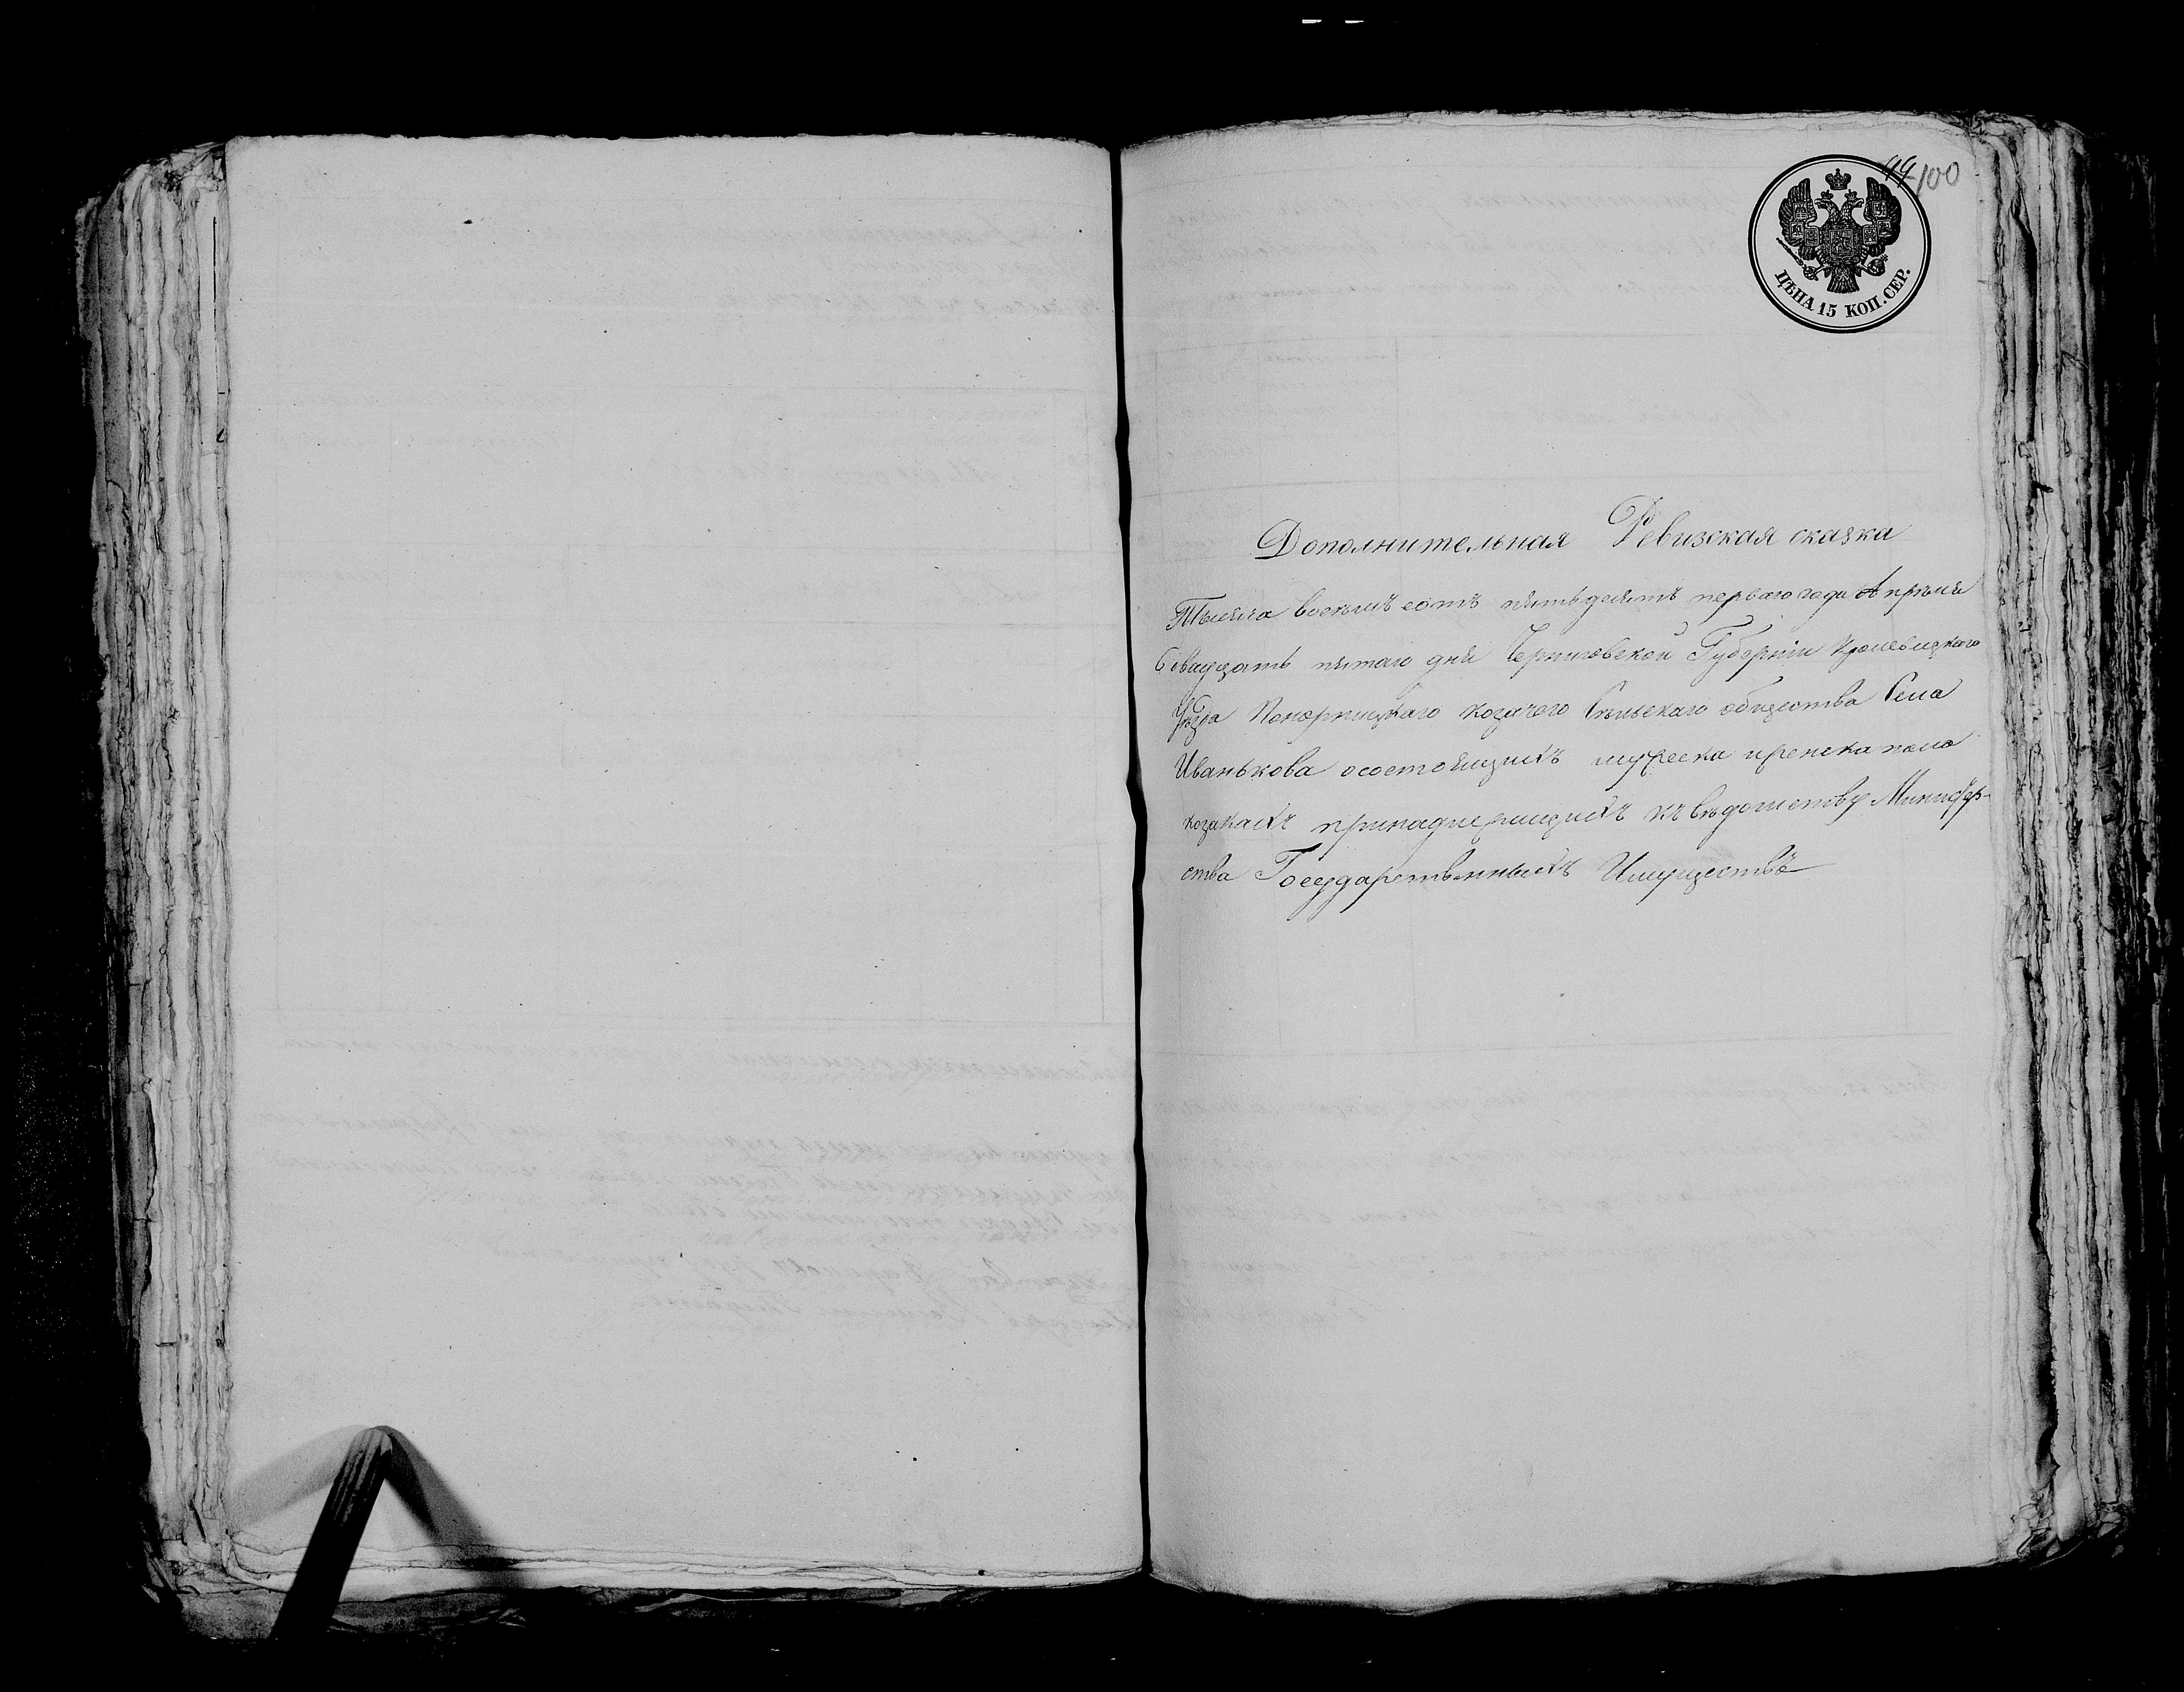 99 100
ЦѢНА 15 КОП. СЕР.
Дополнительная Ревизская сказка
Тысяча восемъ сотъ пятьдесятъ перваго года Апрѣля
двадцать пятаго дня Черниговской Губерніи Кролевецкаго
Уѣзда Понорницкаго козачого Сѣльскаго общества Села
Иванькова осостоящихъ мужеска иженска пола
козакахъ принадлежащихъ къ вѣдомству Министер-
ства Государственныхъ Имуществъ